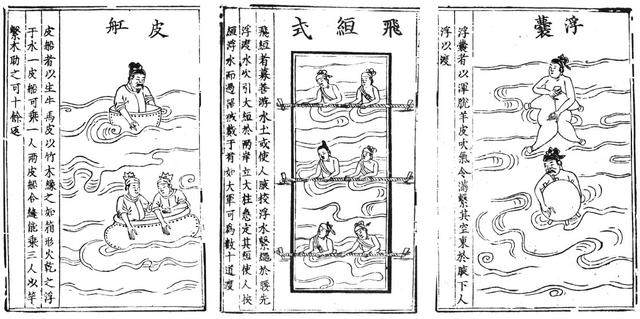 浮囊
浮囊者以渾脫羊皮吹氣令滿繫其空束於腋下人
浮以渡
飛絙式
飛絙者募善游水士或使人腋挾浮水繫繩於腰先
浮渡水次引大絙於兩岸立大柱急定其絙使人挾
絙浮水而過器械戴于首如大軍可為數十道渡
皮舡
皮船者以生牛馬皮以竹木緣之如箱形火乾之浮
于水一皮船可乘一人兩皮船合縫能乘三人以竿
繫木助之可十餘返